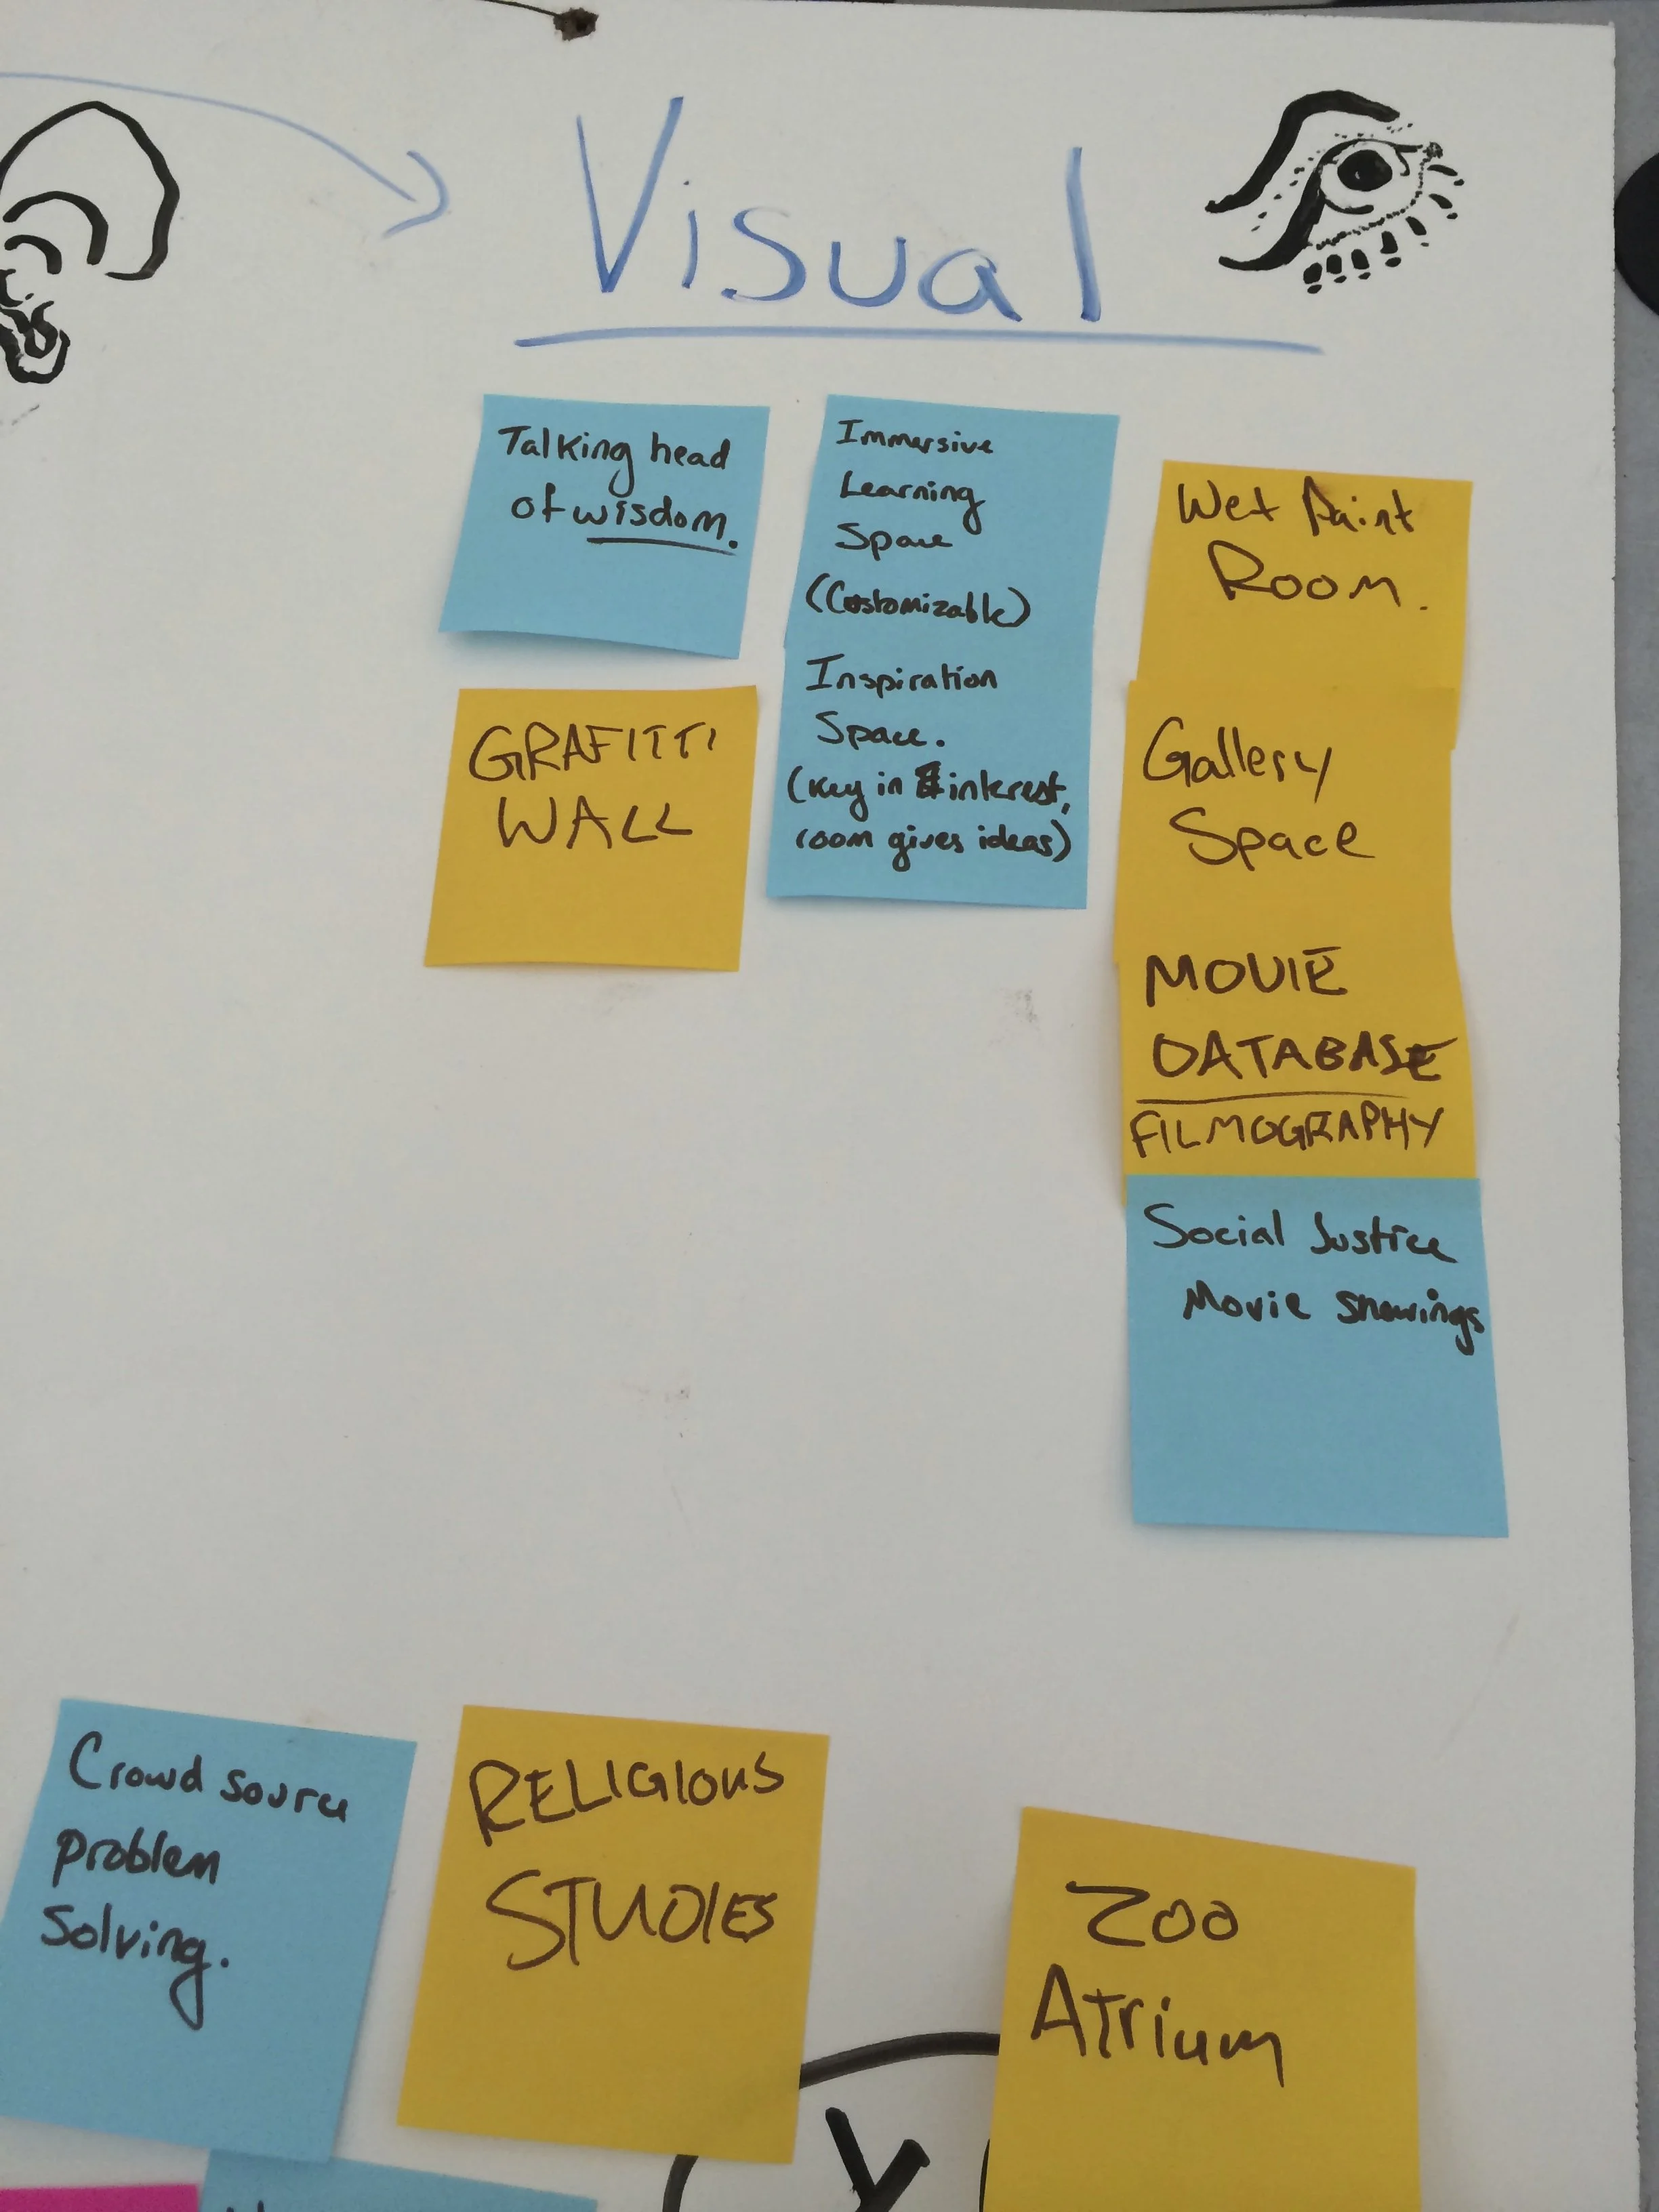 Visual
Talking head
of wisdom.
GRAFITTI
WALL
Immersive
Learning
Space
(Customizable)
Inspiration
Space.
(Key in interest,
room gives ideas)
Wet Paint
Room.
Gallery
Space
MOVIE
DATABASE
FILMOGRAPHY
Social Justice
Movie showings
Crowd source
problem
Solving.
RELIGIOUS
STUDIES
Zoo
Atrium